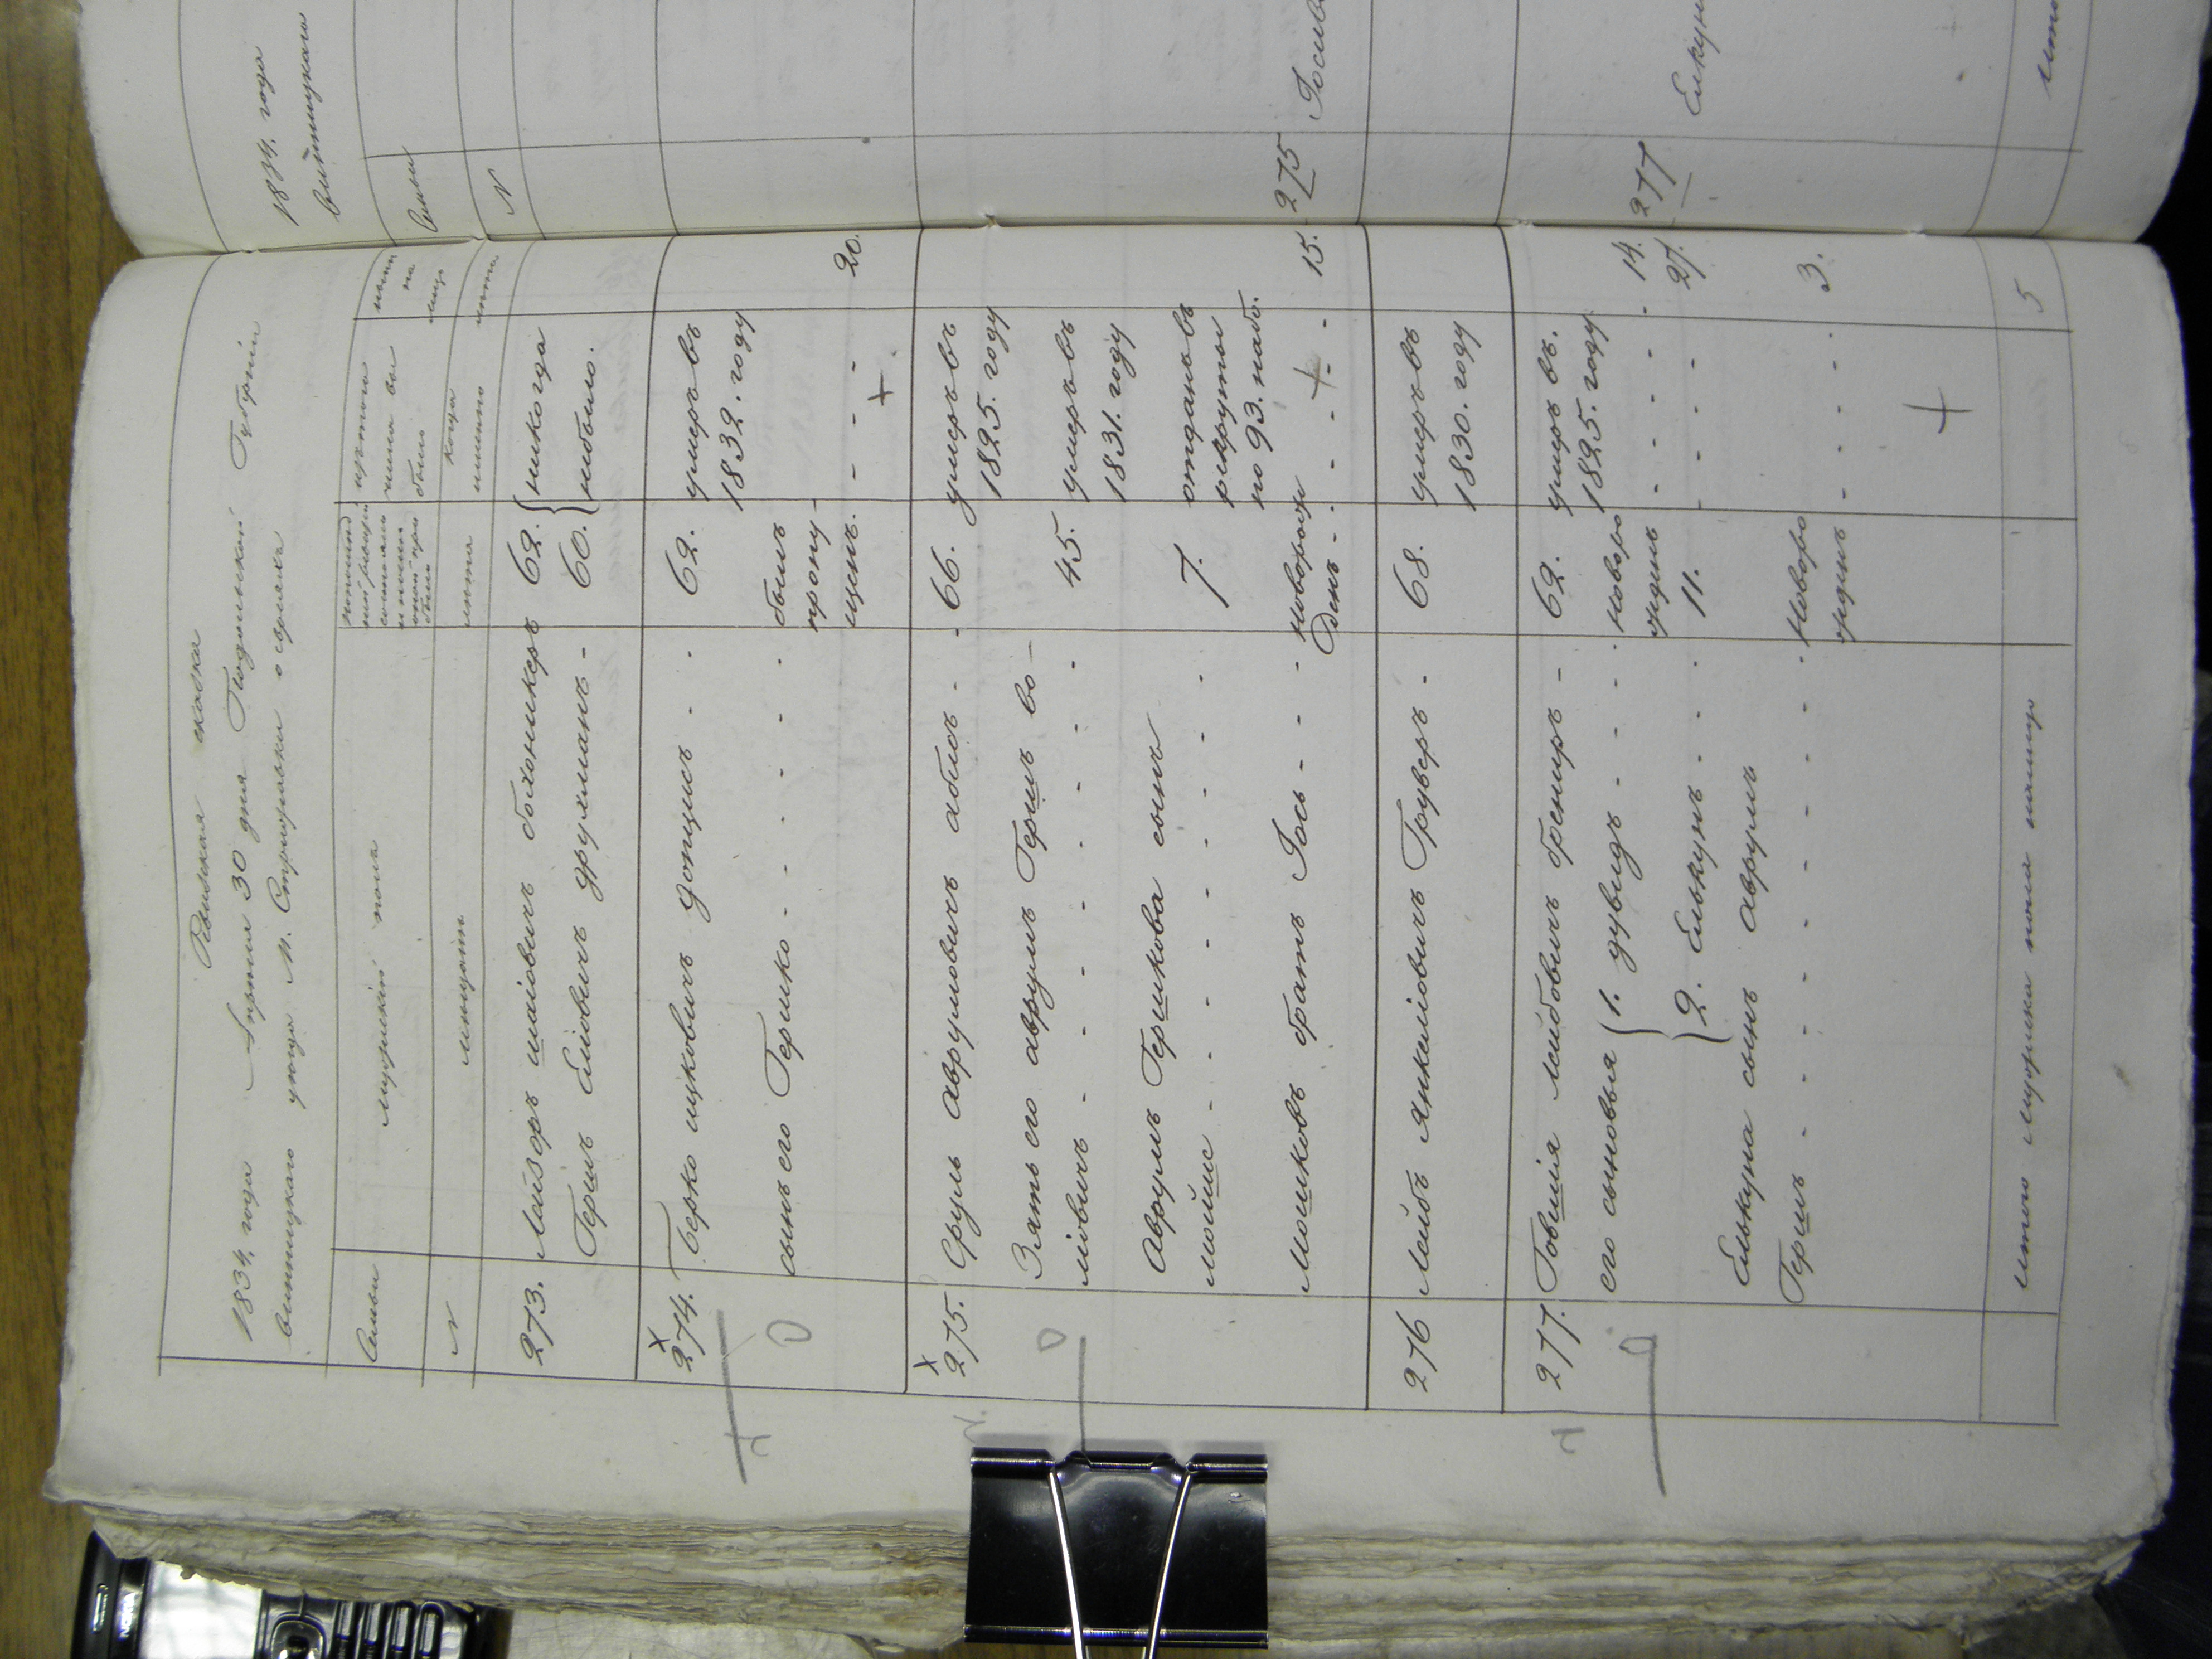 Ревизская сказка
1834. года Апреля 30 дня Подольской Губерніи
Винницкаго уезда М. Стрижовки о евреяхъ
Семьи
мужескій полъ
изъ того
числа вы
было
ныне
на
лицо
N
мещанъ
лета
когда
именно
лета
273. Лейзоръ шаіовичъ боxоникеръ 62. никогда
Гершъ Еліовичъ друхманъ - 60. небыло.
274. Берко ицковичъ донцисъ - - 62. умеръ въ
1832. году
сынъ его Гершко - - - - - былъ
пропу-
щенъ. - - - 20.
275. Сруль Аврумовичъ абисъ - - 66. умеръ въ
1825. году
Зять его аврумъ Гершъ во-
міовичъ - - - - - - - 45. умеръ въ
1831. году
Аврумъ Гершкова сынъ
мойше - - - - - - - 7. отданъ въ
рекруты
по 93. наб.
Мошковъ братъ Іось - - - новорож
денъ - - - - - 15.
276 Лейбъ Янкеліовичъ Груверъ - 68. умеръ въ
1830. году
277. Товшія лейбовичъ бренеръ - 62. умеръ въ.
1825. году.
его сыновья 1. дувидъ - - - - новоро
жденъ - - - - - 14.
2. Елькунъ - - - 11. - - - - 27.
Елькуна сынъ Аврумъ
Гершъ - - - - - - - - новоро
жденъ - - - - 3.
итого мужеска пола налицо 5
1834. года
винницкаго
Семьи
N
275 Іосив
277 Елкун
итого